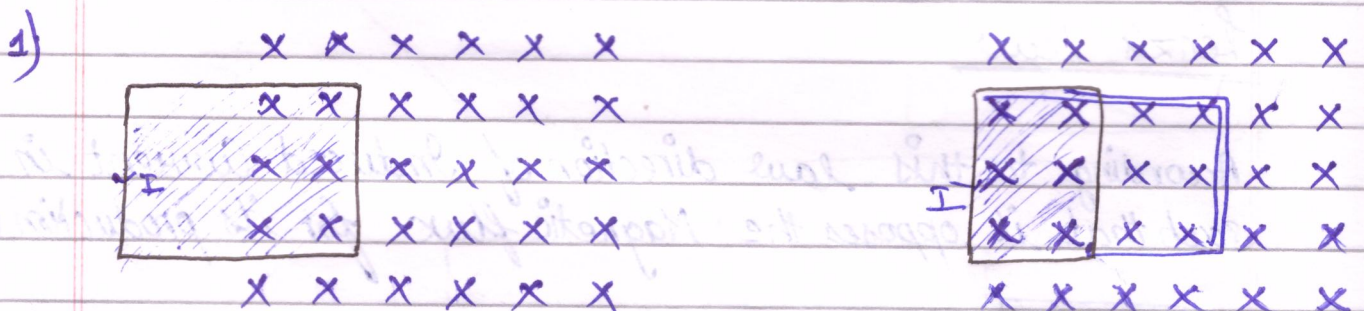 1)
X X X X X X X X X X X X
X X X X X X X X X X X X
X X X X X X X X X X X X
I I
X X X X X X X X X X X X
X X X X X X X X X X X X